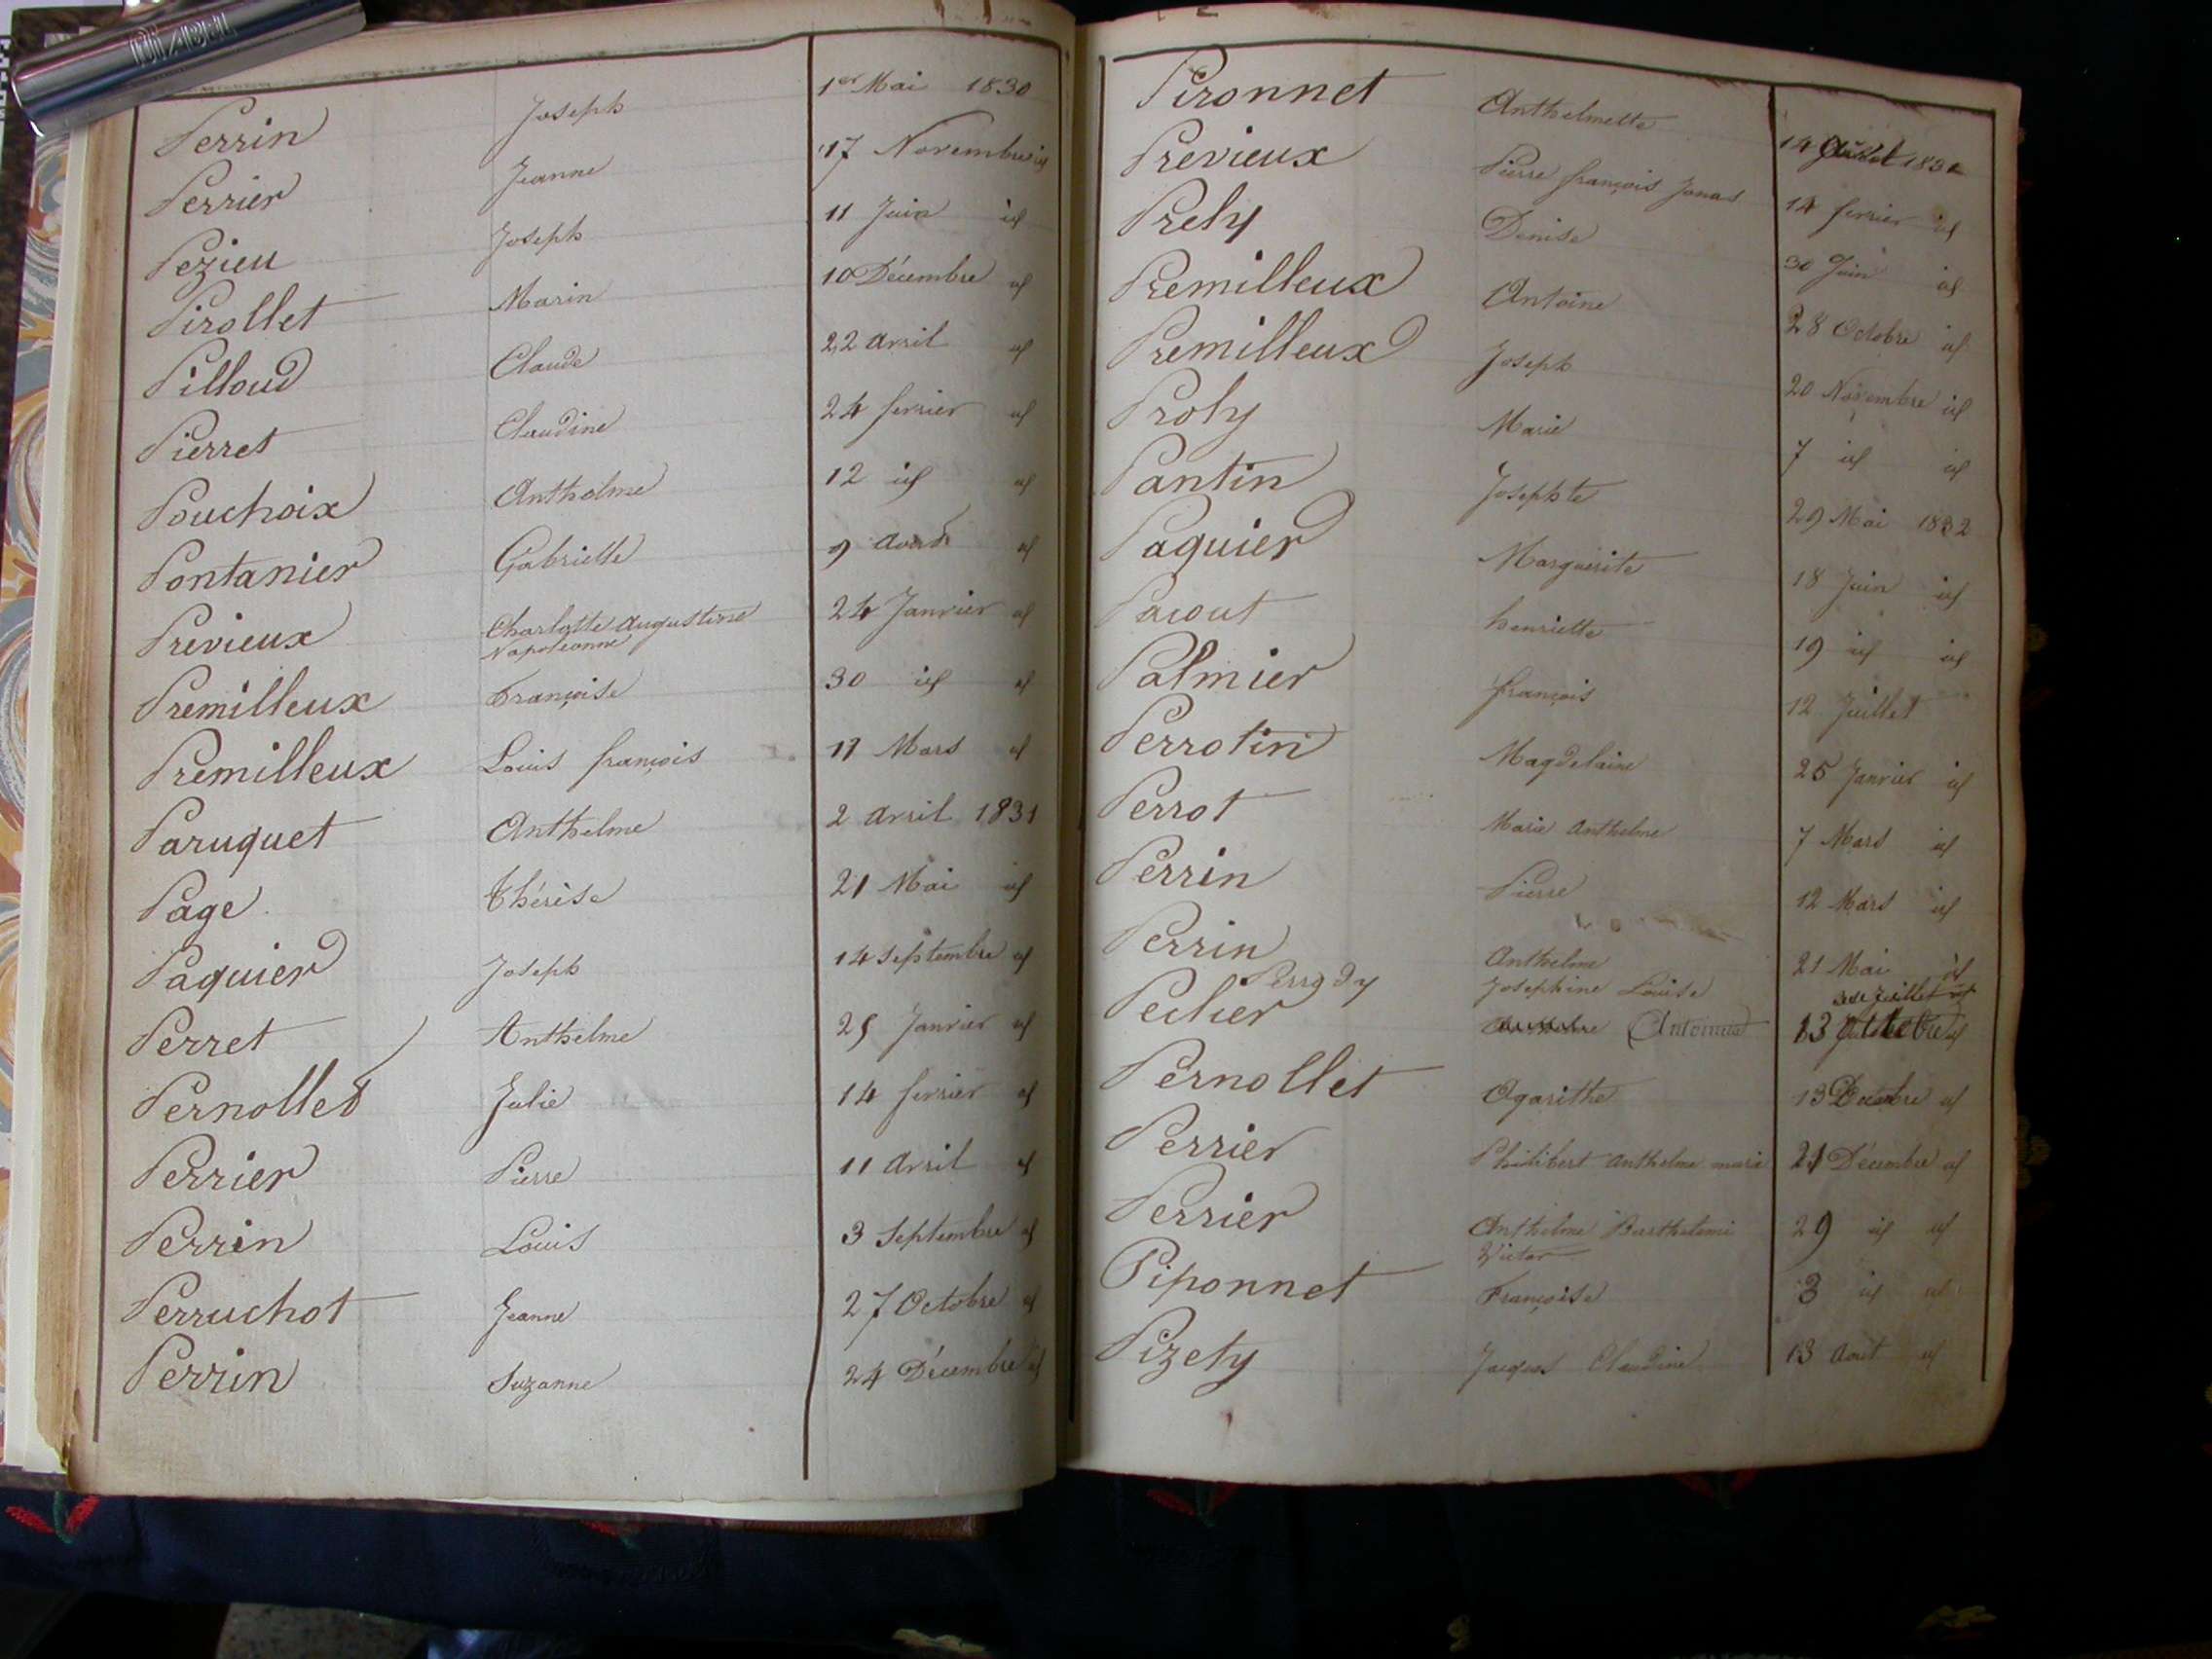 DIZABEL
Perrin Joseph 1er Mai 1830
Perrier Jeanne 17 Novembre id
Pezieu Joseph 11 Juin id
Pirollet Marin 10 Décembre id
Pilloud Claude 22 avril id
Pierret Claudine 24 fevrier id
Pouchoix Anthelme 12 id id
Pontanier Gabrielle 9 id
Prévieux Charlotte Augustine 24 Janvier id
Napoléonne
Premilleux Françoise 30 id id
Premilleux Louis françois 11 Mars id
Paruquet Anthelme 2 avril 1831
Page thérèse 21 Mai id
Paquier Joseph 14 Septembre id
Perret Anthelme 25 Janvier id
Pernollet Julie 14 fevrier id
Perrier Pierre 11 avril id
Perrin Louis 3 Septembre id
Perruchot Jeanne 27 Octobre id
Perrin Suzanne 24 Décembre id
Pironnet Anthelmette 14 1831
Prévieux Pierre françois Jonas 14 fevrier id
Prely Denise 30 Juin id
Premilleux Antoine 28 Octobre id
Premilleux Joseph 20 Novembre id
Proly Marie 7 id id
Pantin Josephte 29 Mai 1832
Paquier Marguerite 18 Juin id
Pacout henriette 19 id id
Palmier françois 12 Juillet
Perrotin Magdelaine 25 Janvier id
Perrot Marie Anthelme 7 Mars id
Perrin Pierre 12 Mars id
Perrin Anthelme 21 Mai id
Perrody Josephine Louise Juillet id
Pecher Antoinette 13 id
Pernollet Agarithe 13 id
Perrier Philibert Anthelme marie 21 Décembre id
Perrier Anthelme Barthelemi 29 id id
Victor
Piponnet Françoise 3 id id
Pizety Jacques Claudine 13 Aout id